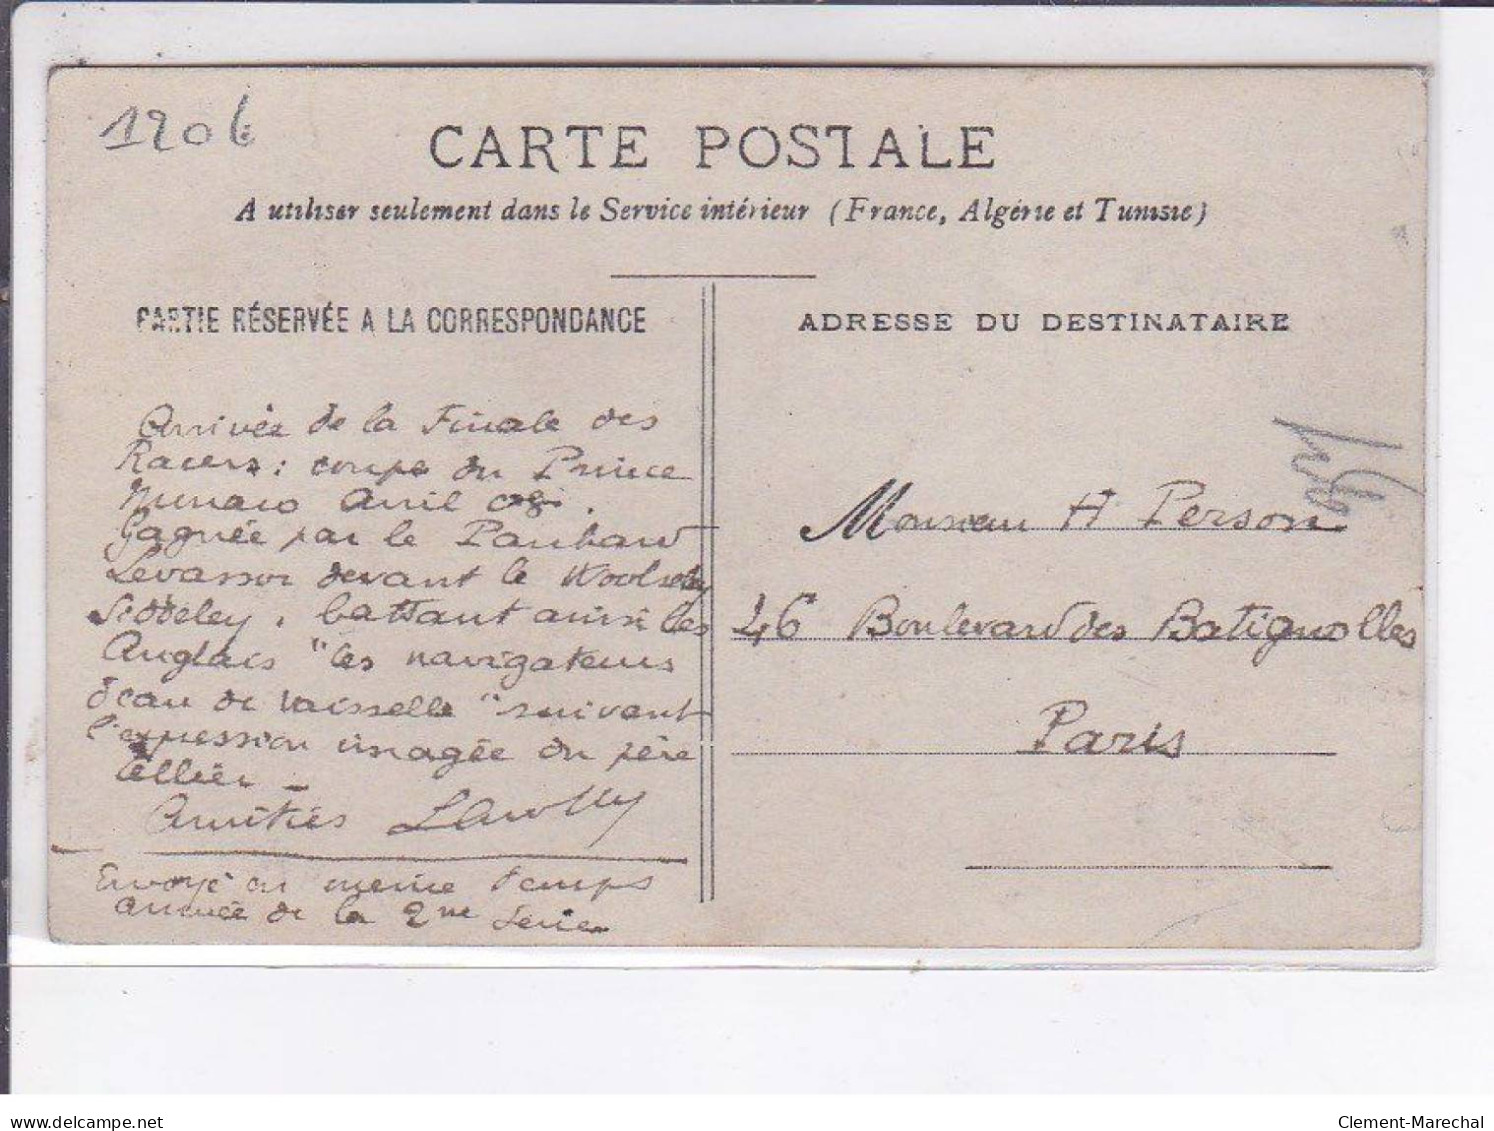 1906
CARTE POSTALE
A utiliser seulement dans le Service intérieur (France, Algérie et Tunisie)
PARTIE RÉSERVÉE A LA CORRESPONDANCE
ADRESSE DU DESTINATAIRE
Arrivée de la Finale des
Racers : coupe du Prince
Avril 08.
Gagnée par le Panhard
Levassor devant le Woolseley
Siddeley, battant ainsi les
Anglais "les navigateurs
d'eau de vaisselle" suivant
l'expression imagée du père
Tellier _
Amitiés
Envoyé en meme temps
arrivée de la 2me Serie
Monsieur H Person
46 Boulevard des Batignolles
Paris
delcampe.net
Clement-Marechal